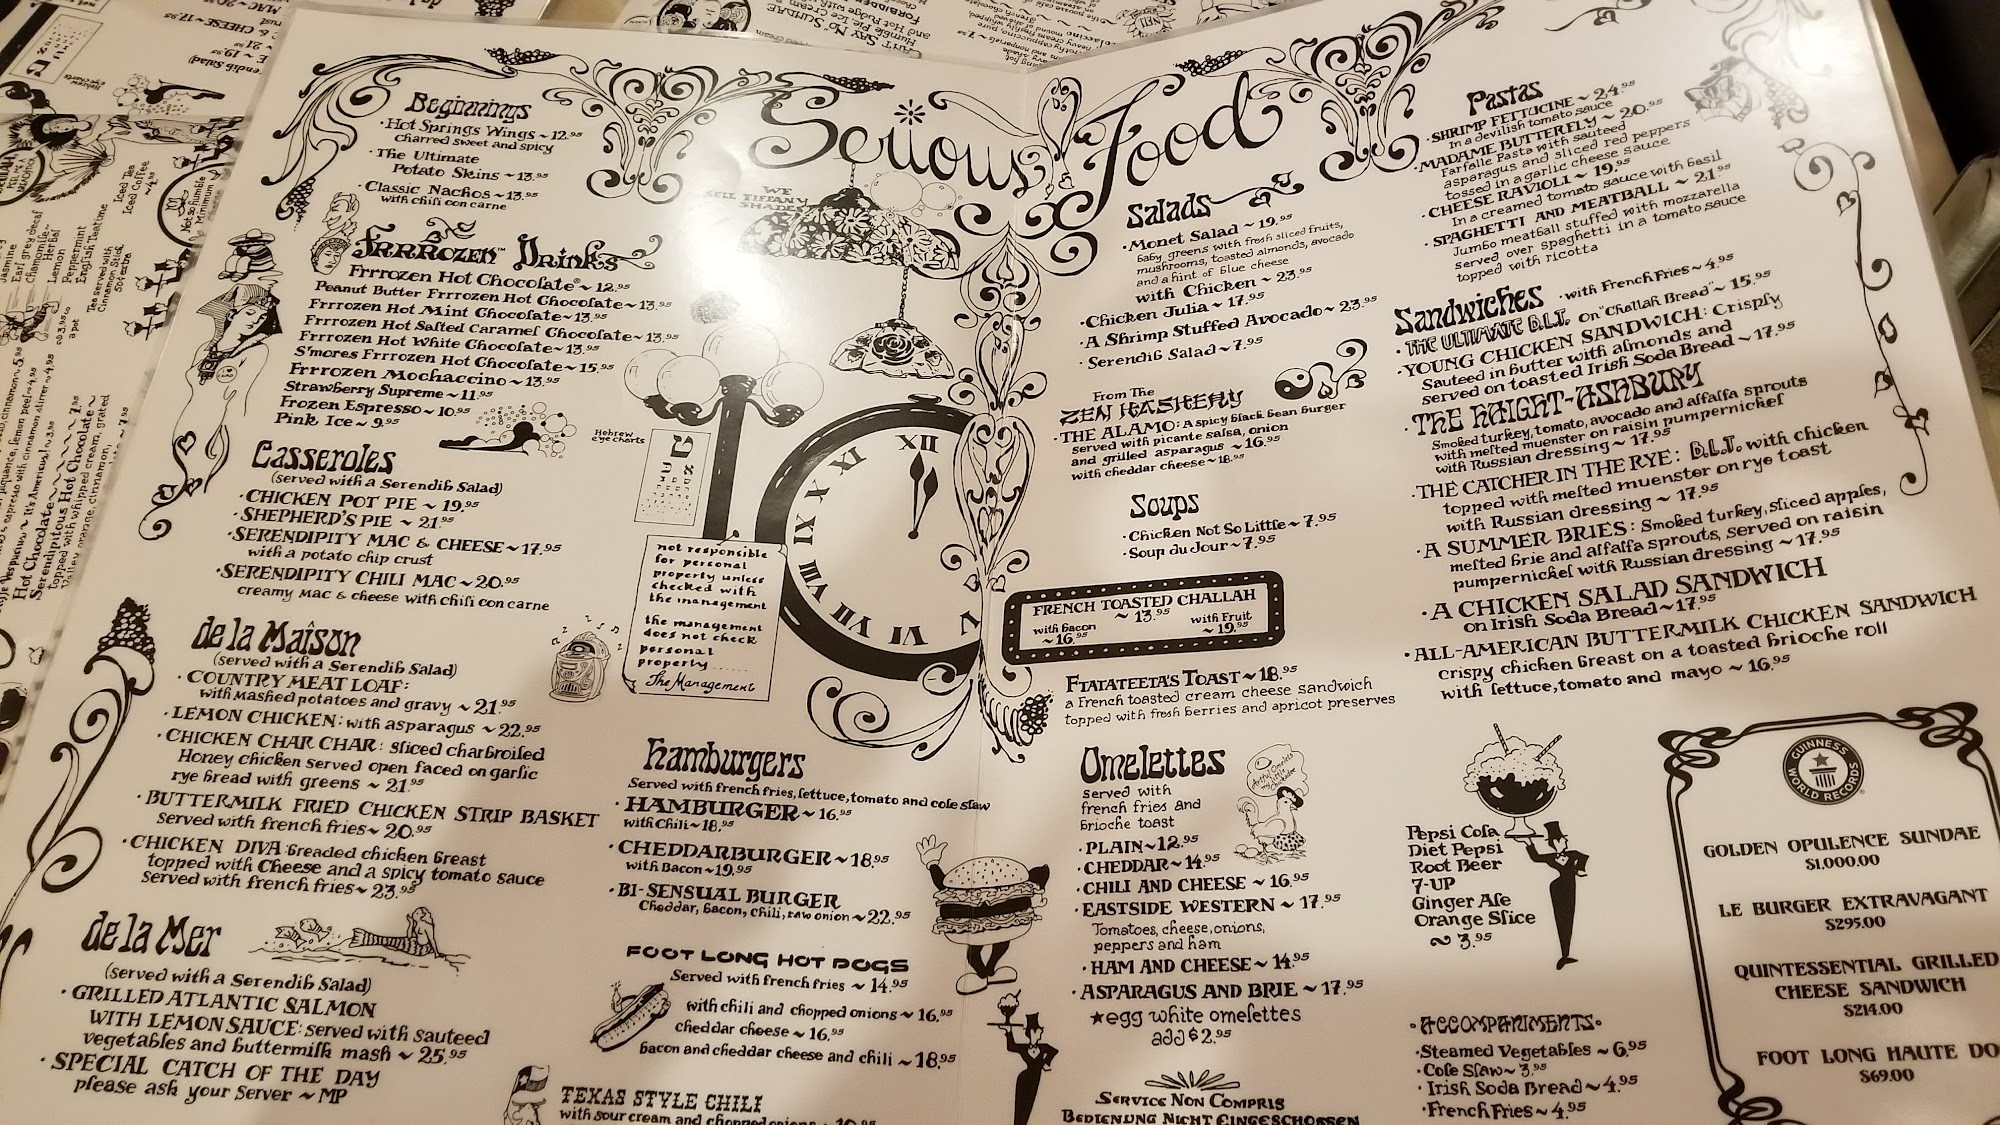 Serious Food
WE
SELL TIFFANY
SHADES
Beginnings
·Hot Springs Wings ~ 12.95
charred sweet and spicy
·The Ultimate
Potato Skins ~ 13.95
·Classic Nachos ~ 13.95
with chili con carne
Frrrozen™ Drinks
Frrrozen Hot Chocolate® ~ 12.95
Peanut Butter Frrrozen Hot Chocolate ~ 13.95
Frrrozen Hot Mint Chocolate ~ 13.95
Frrrozen Hot Salted Caramel Chocolate ~ 13.95
Frrrozen Hot White Chocolate ~ 13.95
S'mores Frrrozen Hot Chocolate ~ 15.95
Frrrozen Mochaccino ~ 13.95
Strawberry Supreme ~ 11.95
Frozen Espresso ~ 10.95
Pink Ice ~ 9.95
Hebrew
eye charts
Casseroles
(served with a Serendib Salad)
·CHICKEN POT PIE ~ 19.95
·SHEPHERD'S PIE ~ 21.95
·SERENDIPITY MAC & CHEESE ~ 17.95
with a potato chip crust
·SERENDIPITY CHILI MAC ~ 20.95
creamy mac & cheese with chili con carne
de la Maîson
(served with a Serendib Salad)
·COUNTRY MEAT LOAF:
with mashed potatoes and gravy ~ 21.95
·LEMON CHICKEN: with asparagus ~ 22.95
·CHICKEN CHAR CHAR: sliced charbroiled
Honey chicken served open faced on garlic
rye bread with greens ~ 21.95
·BUTTERMILK FRIED CHICKEN STRIP BASKET
served with french fries ~ 20.95
·CHICKEN DIVA: Breaded chicken breast
topped with Cheese and a spicy tomato sauce
Served with french fries ~ 23.95
de la Mer
(served with a Serendib Salad)
·GRILLED ATLANTIC SALMON
WITH LEMON SAUCE: served with sauteed
vegetables and buttermilk mash ~ 25.95
·SPECIAL CATCH OF THE DAY
please ask your Server ~ MP
not responsible
for personal
property unless
checked with
the management
the management
does not check
personal
property......
The Management
Hamburgers
Served with french fries, lettuce, tomato and cole slaw
·HAMBURGER ~ 16.95
with Chili ~ 18.95
·CHEDDARBURGER ~ 18.95
with Bacon ~ 19.95
·BI-SENSUAL BURGER
Cheddar, bacon, chili, raw onion ~ 22.95
FOOT LONG HOT DOGS
Served with french fries ~ 14.95
with chili and chopped onions ~ 16.95
cheddar cheese ~ 16.95
bacon and cheddar cheese and chili ~ 18.95
TEXAS STYLE CHILI
with sour cream and chopped onions ~
Salads
·Monet Salad ~ 19.95
baby greens with fresh sliced fruits,
mushrooms, toasted almonds, avocado
and a hint of blue cheese
with Chicken ~ 23.95
·Chicken Julia ~ 17.95
·A Shrimp Stuffed Avocado ~ 23.95
·Serendib Salad ~ 7.95
From The
ZEN HASHERY
·THE ALAMO: A spicy black bean burger
served with picante salsa, onion
and grilled asparagus ~ 16.95
with cheddar cheese ~ 18.95
Soups
·Chicken Not So Little ~ 7.95
·Soup du Jour ~ 7.95
FRENCH TOASTED CHALLAH
~ 13.95
with bacon
~ 16.95
with Fruit
~ 19.95
FTATATEETA'S TOAST ~ 18.95
a French toasted cream cheese sandwich
topped with fresh berries and apricot preserves
Omelettes
served with
french fries and
brioche toast
·PLAIN ~ 12.95
·CHEDDAR ~ 14.95
·CHILI AND CHEESE ~ 16.95
·EASTSIDE WESTERN ~ 17.95
Tomatoes, cheese, onions,
peppers and ham
·HAM AND CHEESE ~ 14.95
·ASPARAGUS AND BRIE ~ 17.95
★egg white omelettes
add $2.95
SERVICE NON COMPRIS
BEDIENUNG NICHT EINGESCHOSSEN
Pastas
·SHRIMP FETTUCINE ~ 24.95
In a devilish tomato sauce
·MADAME BUTTERFLY ~ 20.95
Farfalle Pasta with sauteed
asparagus and sliced red peppers
tossed in a garlic cheese sauce
·CHEESE RAVIOLI ~ 19.95
In a creamed tomato sauce with basil
·SPAGHETTI AND MEATBALL ~ 21.95
Jumbo meatball stuffed with mozzarella
served over spaghetti in a tomato sauce
topped with ricotta
Sandwiches ·with French Fries ~ 4.95
·THE ULTIMATE B.L.T. on "Challah Bread" ~ 15.95
·YOUNG CHICKEN SANDWICH: Crispy
Sauteed in butter with almonds and
served on toasted Irish Soda Bread ~ 17.95
·THE HAIGHT-ASHBURY
Smoked turkey, tomato, avocado and alfalfa sprouts
with melted muenster on raisin pumpernickel
with Russian dressing ~ 17.95
·THE CATCHER IN THE RYE: B.L.T. with chicken
topped with melted muenster on rye toast
with Russian dressing ~ 17.95
·A SUMMER BRIES: Smoked turkey, sliced apples,
melted brie and alfalfa sprouts, served on raisin
pumpernickel with Russian dressing ~ 17.95
·A CHICKEN SALAD SANDWICH
on Irish Soda Bread ~ 17.95
·ALL-AMERICAN BUTTERMILK CHICKEN SANDWICH
crispy chicken breast on a toasted brioche roll
with lettuce, tomato and mayo ~ 16.95
Pepsi Cola
Diet Pepsi
Root Beer
7-UP
Ginger Ale
Orange Slice
~ 3.95
·ACCOMPANIMENTS·
·Steamed Vegetables ~ 6.95
·Cole Slaw ~ 3.95
·Irish Soda Bread ~ 4.95
·French Fries ~ 4.95
GUINNESS
WORLD RECORDS
GOLDEN OPULENCE SUNDAE
$1,000.00
LE BURGER EXTRAVAGANT
$295.00
QUINTESSENTIAL GRILLED
CHEESE SANDWICH
$214.00
FOOT LONG HAUTE DO
$69.00